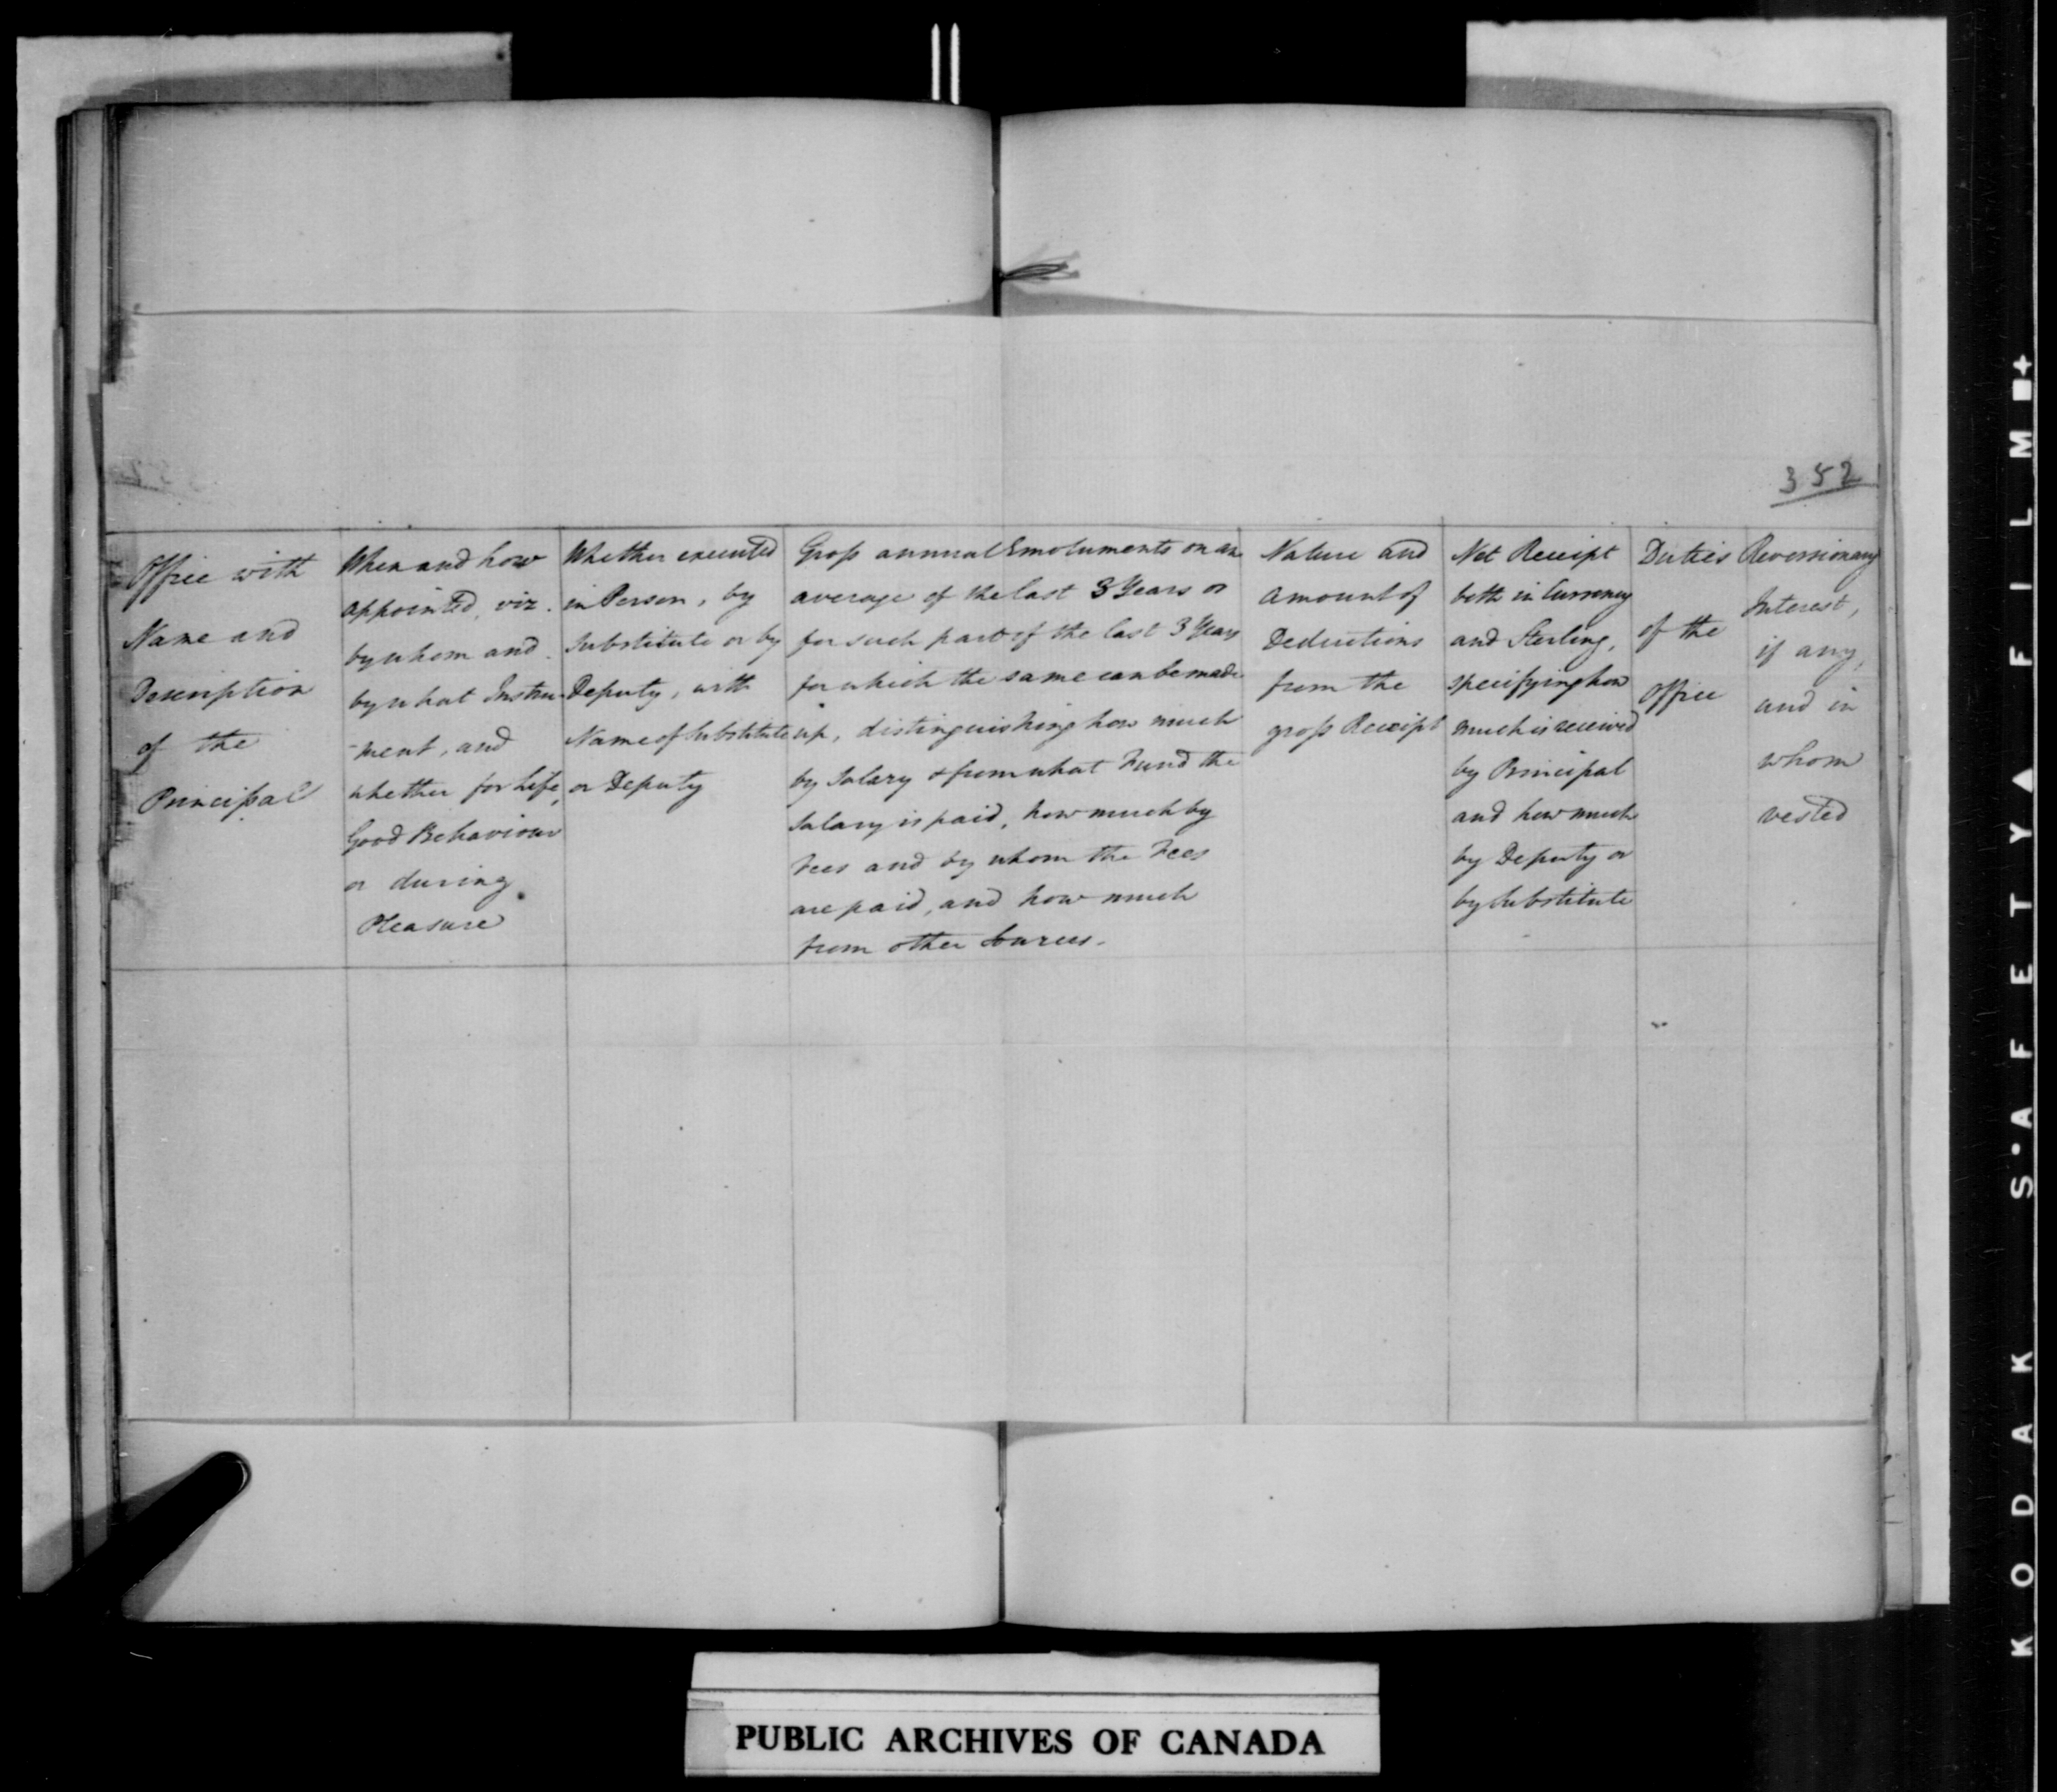 352
Office with
Name and
Description
of the
Principal
When and how
appointed, viz.
by whom and
by what Instru-
-ment, and
whether for Life,
Good Behaviour
or during
Pleasure
Whether executed
in Person, by
Substitute or by
Deputy, with
Name of Substitute
or Deputy
Gross annual Emoluments on an
average of the last 3 Years or
for such part of the last 3 Years
for which the same can be made
up, distinguishing how much
by Salary & from what Fund the
Salary is paid, how much by
Fees and by whom the Fees
are paid, and how much
from other Sources.
Nature and
Amount of
Deductions
from the
gross Receipt
Net Receipt
both in Currency
and Sterling,
specifying how
much is received
by Principal
and how much
by Deputy or
by Substitute
Duties
of the
Office
Reversionary
Interest,
if any,
and in
whom
vested
PUBLIC ARCHIVES OF CANADA
KODAK S·AFETY▲FILM■+